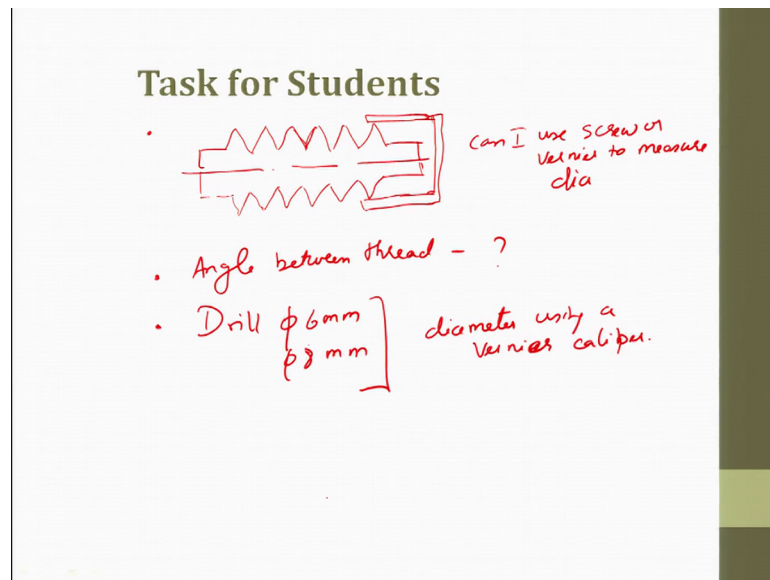 Task for Students
can I use screw or
vernier to measure
dia
• Angle between thread - ?
• Drill ϕ 6mm
ϕ 8 mm
diameter using a
Vernier caliper.